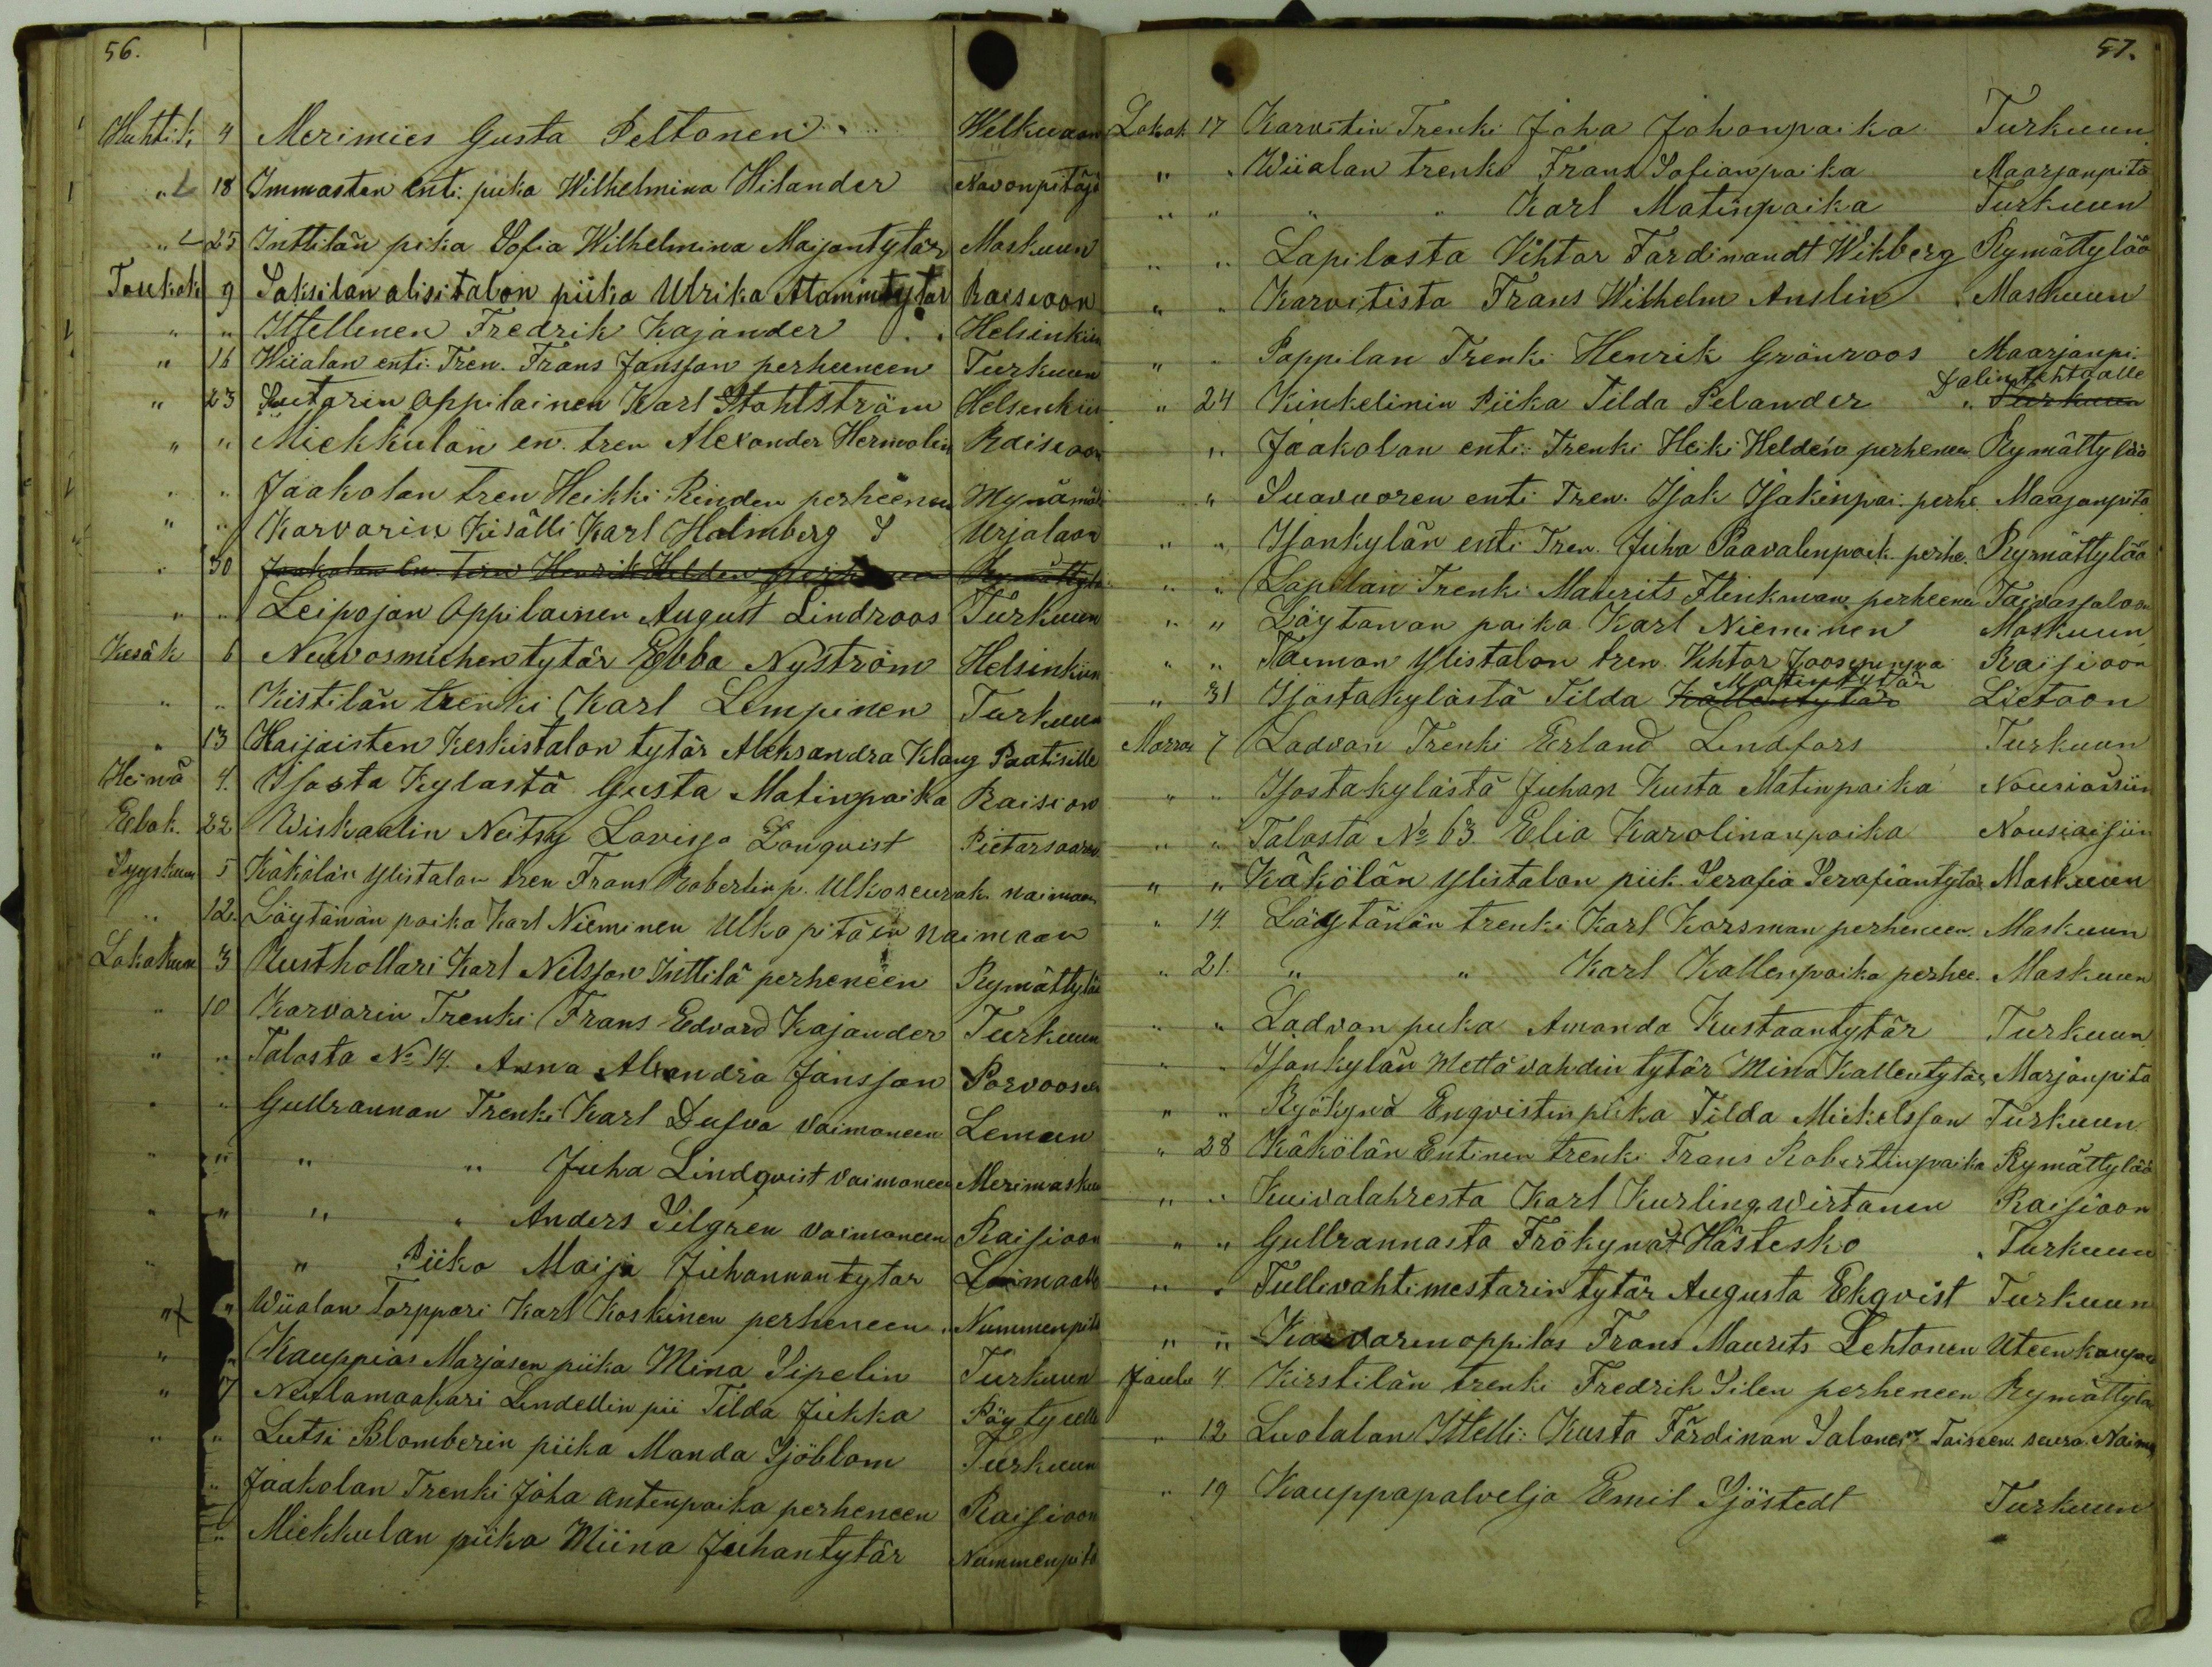 56.
Huhtik 4 Merimies Gusta Peltonen Welkuaan
" 18 Immasten enti. piika Wilhelmina Hilander Navonpitäjä
" 25 Inttilän pika Sofia Wilhelmina Maijantytär Maskuun
Toukok 9 Saksilan alisitalon piika Ulrika Atamintytär Raisioon
" " Ittellinen Fredrik Kajander Helsinkiin
" 16 Wiialan enti. Tren. Frans Jansson perheeneen Turkuun
" 23 Sutarin Oppilainen Karl Stahlström Helsinkiin
" " Miekkulan en. tren Alexander Hermolin Raisioon
" " Jaakolan tren Heikki Rinden perheenen Mynämäki
" " Karvarin Kisälli Karl Holmberg S Urjalaan
" 30 Jaakolan en. Tren Henrik Helden perheneen Rymättylä
" " Leipojan Oppilainen August Lindroos Turkuun
Kesäk 6 Neuvosmiehen tytär Ebba Nyström Helsinkiin
" " Kiistilän trenki Karl Lempinen Turkuun
" 13 Haijaisten Keskistalon tytär Aleksandra Klang Paatisille
Heinä 4. Isosta Kylastä Gusta Matinpoika Raision
Elok. 22 Wiskaalin Neitsy Lovisa Lonqvist Pietarsaaren
Syyskuu 5 Käkölän Ylistalon tren Frans Robertin p. Ulkoseurak. naimaan
" 12. Löytänän poika Karl Nieminen Ulkopitäiin naimaan
Lokakuu 3 Rusthollari Karl Nilsson Inttilä perheneen Rymättylä
" 10 Karvarin Trenki Frans Edvard Kajander Turkuun
" " Talosta No 14. Anna Alexandra Jansson Porvoosen
" " Gullrannan Trenki Karl Dufva vaimoneen Lemuun
" " " " Juha Lindqvist vaimoneen Merimasku
" " " " Anders Silgren vaimoneen Raisioon
" " Piika Maija Juhannantytar Loimaalle
" " Wiialan Torppari Karl Koskinen perheneen Nummenpitä
" " Kauppias Marjasen piika Mina Sipelin Turkuun
" 17 Neulamaakari Lindellin pii Tilda Jukka Pöytyälle
" " Lutsi Blomberin piika Manda Sjöblom Turkuun
" Jaakolan Trenki Joha Antenpoika perheneen Raisioon
" Miekkulan piika Miina Juhantytär Nummenpitä
57.
Lokak 17 Karvitin Trenki Joha Johanpoika Turkuun
" " Wiialan trenki Frans Sofianpoika Maarjanpitä
" " " " Karl Matinpoika Turkuun
" " Lapilasta Vihtor Fardinandt Wikberg Rymättylää
" " Karvitista Frans Wilhelm Anslin Maskuun
" " Pappilan Trenki Henrik Grönroos Maarjanpi.
Dalin tehtaalle
" 24 Kinkelinin Piika Tilda Pelander " Turkuun
" Jaakolan enti: Trenki Heiki Helden perhenen Rymättylää
" Suavuoren enti Tren. Isak Isakinpoi. perhe. Maajanpitä
" " Isonkylän enti Tren. Juha Paavalinpoik. perhe. Rymättylää
" " Lapilan Trenki Maurits Flinkman perheenen Taivassaloon
" " Löytanan poika Karl Nieminen Maskuun
" " Taiman Ylistalon tren. Vihtor Joosepinpoi Raisioon
Matintytär
" 31 Isostakylästä Tilda Kallentytär Lietoon
Marras 7 Ladvan Trenki Erland Lindfors Turkuun
" " Isostakylästä Juhan Kusta Matinpoika Nousiaisiin
" " Talosta No 63. Elia Karolinanpoika Nousiaisiin
" " Käkölän Ylistalon piik. Serafia Serafiantytär Maskuun
" 14. Löytänän trenki Karl Korsman perheneen Maskuun
" 21. " " Karl Kallenpoika perhee. Maskuun
" " Ladvan piika Amanda Kustaantytär Turkuun
" " Isonkylän Mettävahdin tytär Mina Kallentytär Marjanpitä
" " Ryökynä Enqvistin piika Tilda Mickelsson Turkuun
" 28 Käkölän Entinen trenki Frans Robertinpoika Rymättylää
" " Kuivalahresta Karl Kurling Wirtanen Raisioon
" " Gullrannasta Frökynät Hästesko Turkuun
" " Tullivahtimestarin tytär Augusta Ekqvist Turkuun
" " Karvarinoppilas Frans Maurits Lehtonen Uteenkaupu
Joulu 4. Kirstilän trenki Fredrik Silen perheneen Rymättylä
" 12 Luolalan Ittelli: Kusta Färdinan Salonen Toiseen seura. Naim
" 19 Kauppapalvelja Emil Sjöstedt Turkuun